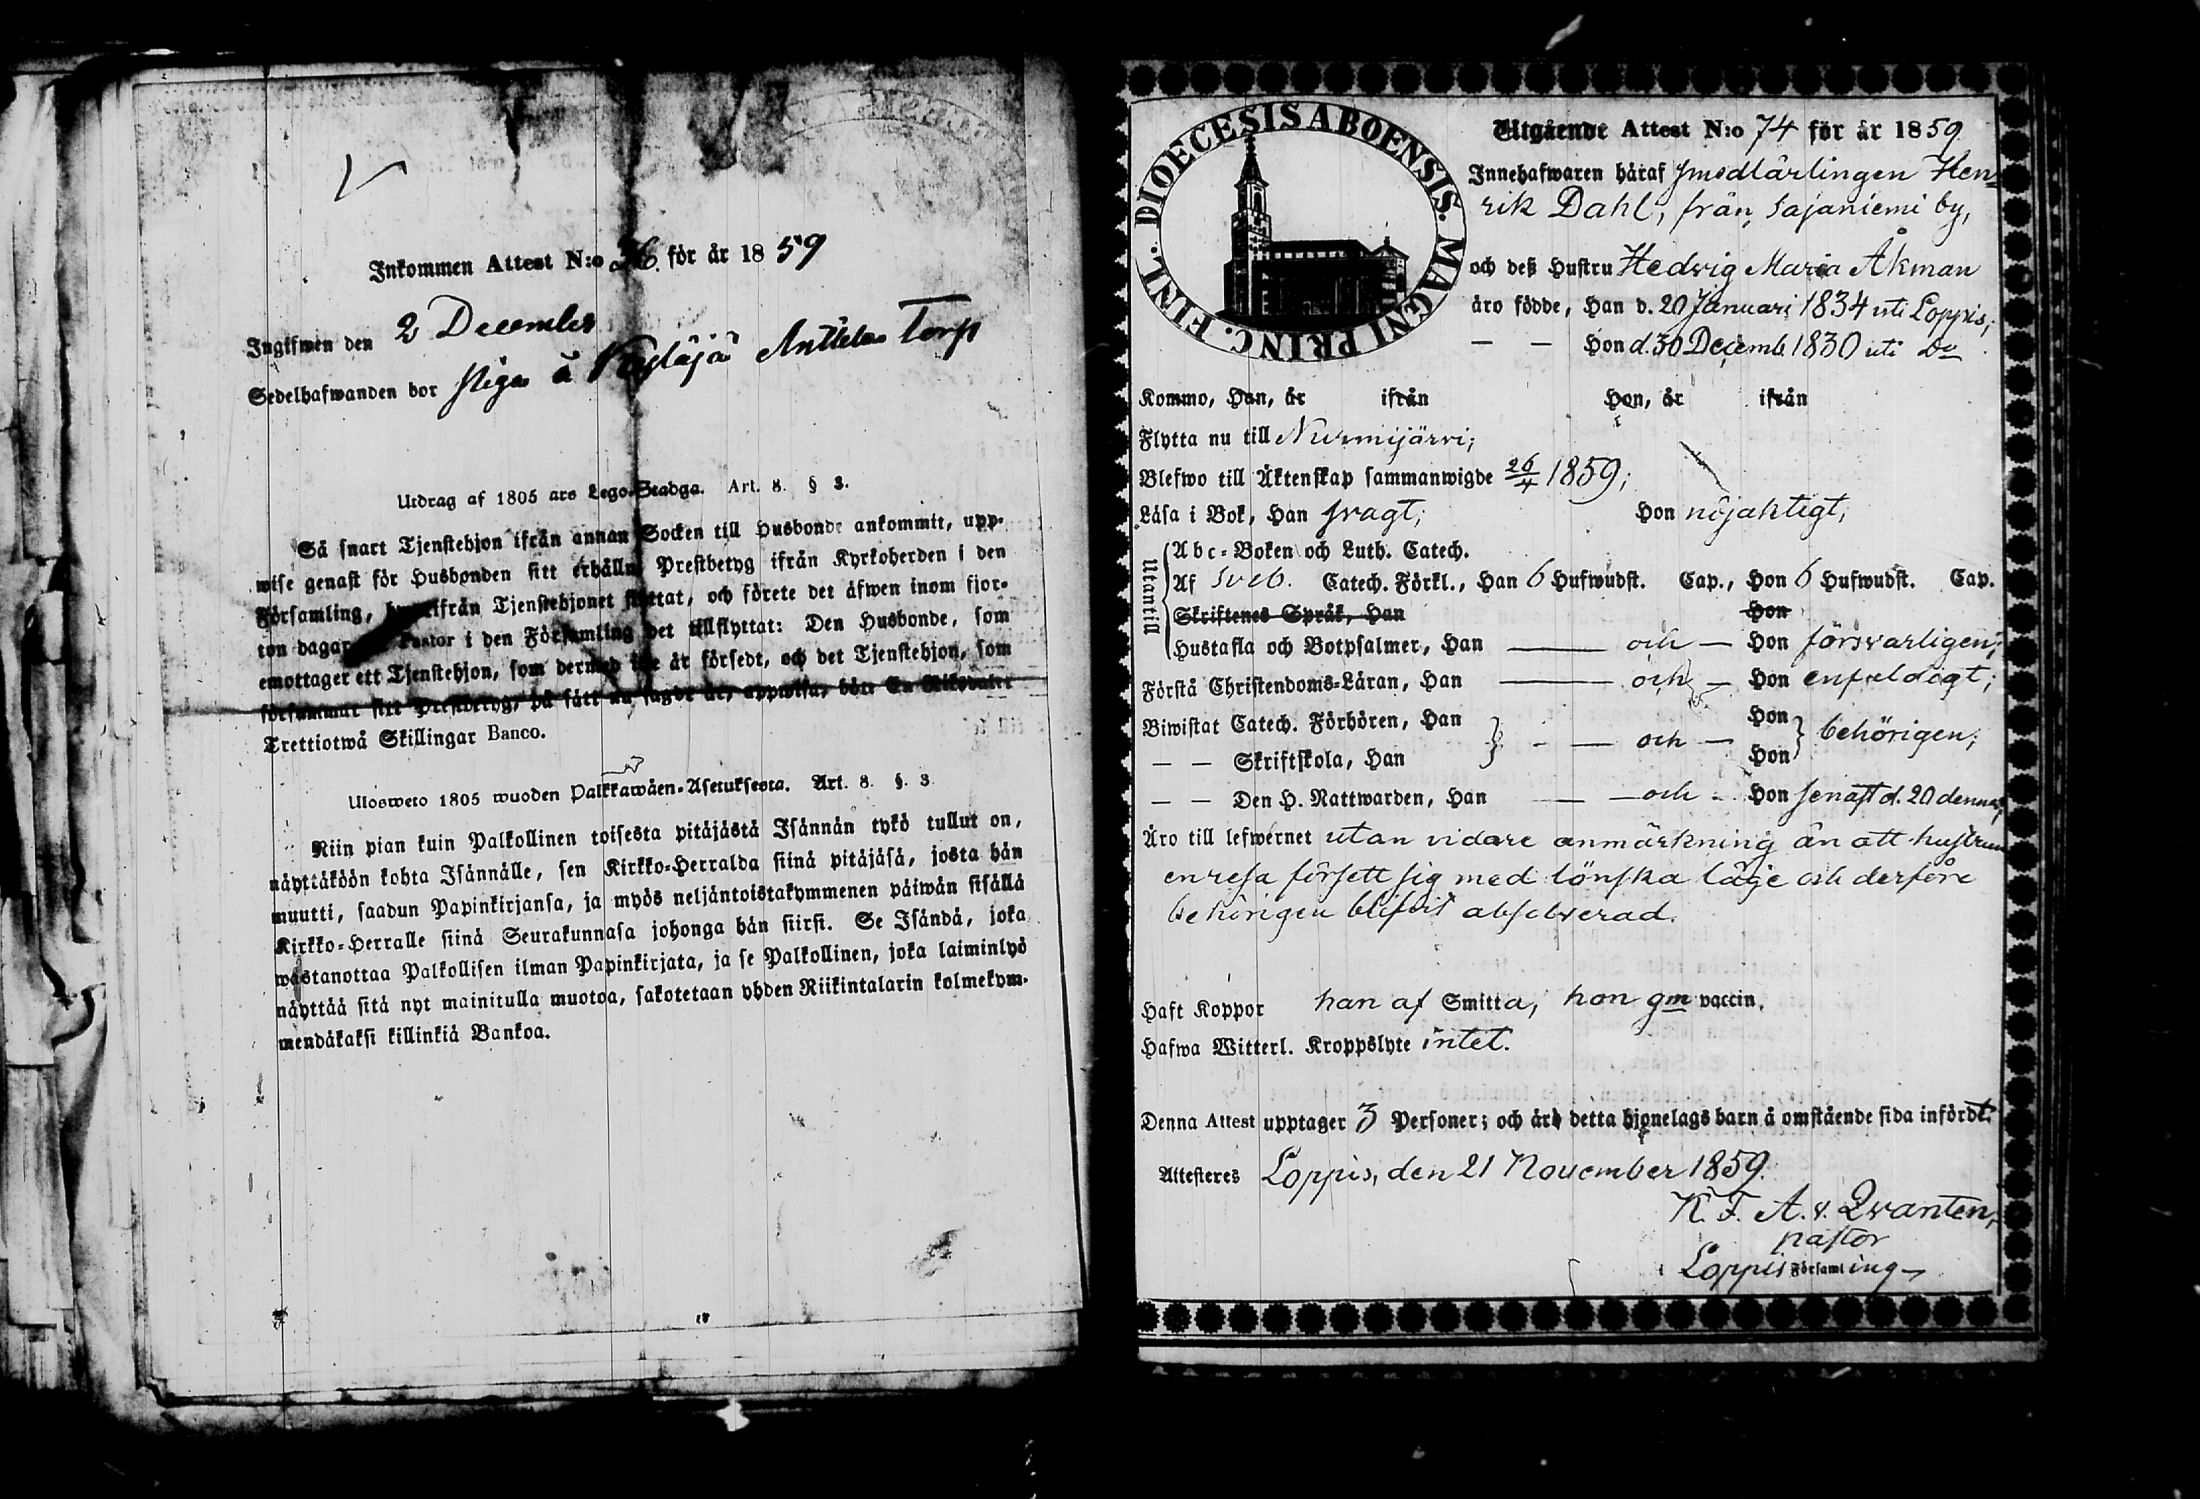 Inkommen Attest N:o 36. för år 1859
Ingifwen den 2 December
Sedelhafwanden bor å Anttila Torp
Utdrag af 1805 ars Lego-Stadga. Art. 8. § 3.
Så snart Tjenstehjon ifrån annan Socken till Husbonde ankommit, upp-
wise genast för Husbonden sitt erhållna Prestbetyg ifrån Kyrkoherden i den
Församling, hwarifrån Tjenstehjonet flyttat, och förete det äfwen inom fjor-
ton dagar Pastor i den Församling det tillflyttat: Den Husbonde, som
emottager ett Tjenstehjon, som dermed icke är försedt, och det Tjenstehjon, som
försummar sitt Prestbetyg, på sätt nu sagdt är, uppwisa, böte En Riksdaler
Trettiotwå Skillingar Banco.
Ulosweto 1805 wuoden Palkkawäen-Asetuksesta. Art. 8. §. 3.
Niin pian kuin Palkollinen toisesta pitäjästä Isännän tykö tullut on,
näyttäköön kohta Isännälle, sen Kirkko-Herralda siinä pitäjäsä, josta hän
muutti, saadun Papinkirjansa, ja myös neljäntoistakymmenen päiwän sisällä
Kirkko-Herralle siinä Seurakunnasa johonga hän siirsi. Se Isändä, joka
wastanottaa Palkollisen ilman Papinkirjata, ja se Palkollinen, joka laiminlyö
näyttää sitä nyt mainitulla muotoa, sakotetaan yhden Riikintalarin kolmekym-
mendäkaksi killinkiä Bankoa.
FINL. DIOECESIS ABOENSIS. MAGNI PRINC.
Utgående Attest N:o 74 för år 1859
Innehafwaren häraf smedlärlingen Hen-
rik Dahl, från Sajaniemi by,
och deß Hustru Hedvig Maria Åkman
äro födde, Han d. 20 Januari 1834 uti Loppis;
— — Hon d. 30 Decemb. 1830 uti Do
Kommo, Han, år ifrån Hon, år ifrån
Flytta nu till Nurmijärvi;
Blefwo till Äktenskap sammanwigde 26/4 1859;
Läsa i Bok, Han svagt; Hon nöjaktigt;
Utantill
Abc-Boken och Luth. Catech.
Af Sveb. Catech. Förkl., Han 6 Hufwudst. Cap., Hon 6 Hufwudst. Cap.
Skriftenes Språk, Han Hon
Hustafla och Botpsalmer, Han — och — Hon försvarligen;
Förstå Christendoms-Läran, Han — och — Hon enfaldigt;
Biwistat Catech. Förhören, Han Hon
— — Skriftskola, Han - — och — Hon behörigen;
— — Den H. Nattwarden, Han — och - Hon senast d. 20 dennes,
Äro till lefwernet utan vidare anmärkning än att hustrun
en resa försett sig med lönska läge och derföre
behörigen blifvit absolverad.
Haft Koppor han af Smitta, hon gm vaccin.
Hafwa Witterl. Kroppslyte intet.
Denna Attest upptager 3 Personer; och äro detta hjonelags barn å omstående sida infördt.
Attesteres Loppis, den 21 November 1859.
K. F. A. v. Qvanten,
pastor
Loppis Församling